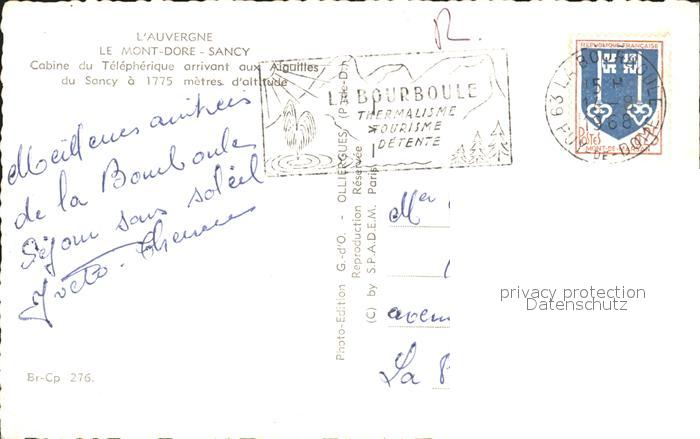 L'AUVERGNE
LE MONT-DORE - SANCY
Cabine du Téléphérique arrivant aux Aiguilles
du Sancy à 1775 mètres d'altitude
R.
LA BOURBOULE
THERMALISME
TOURISME
DÉTENTE
REPUBLIQUE FRANÇAISE
POSTES 0,25
MONT-DE-MARSAN
63 LA BOURBOULE
15 H
1968
PUY-DE-DOME
Meilleures amitiés
de la Bourboule
Séjour sans soleil
Photo-Edition G.-d'O. - OLLIERGUES (P.-de-D.)
Reproduction Réservée
(C) by S.P.A.D.E.M. Paris
Mer
aven
La
privacy protection
Datenschutz
Br-Cp 276.